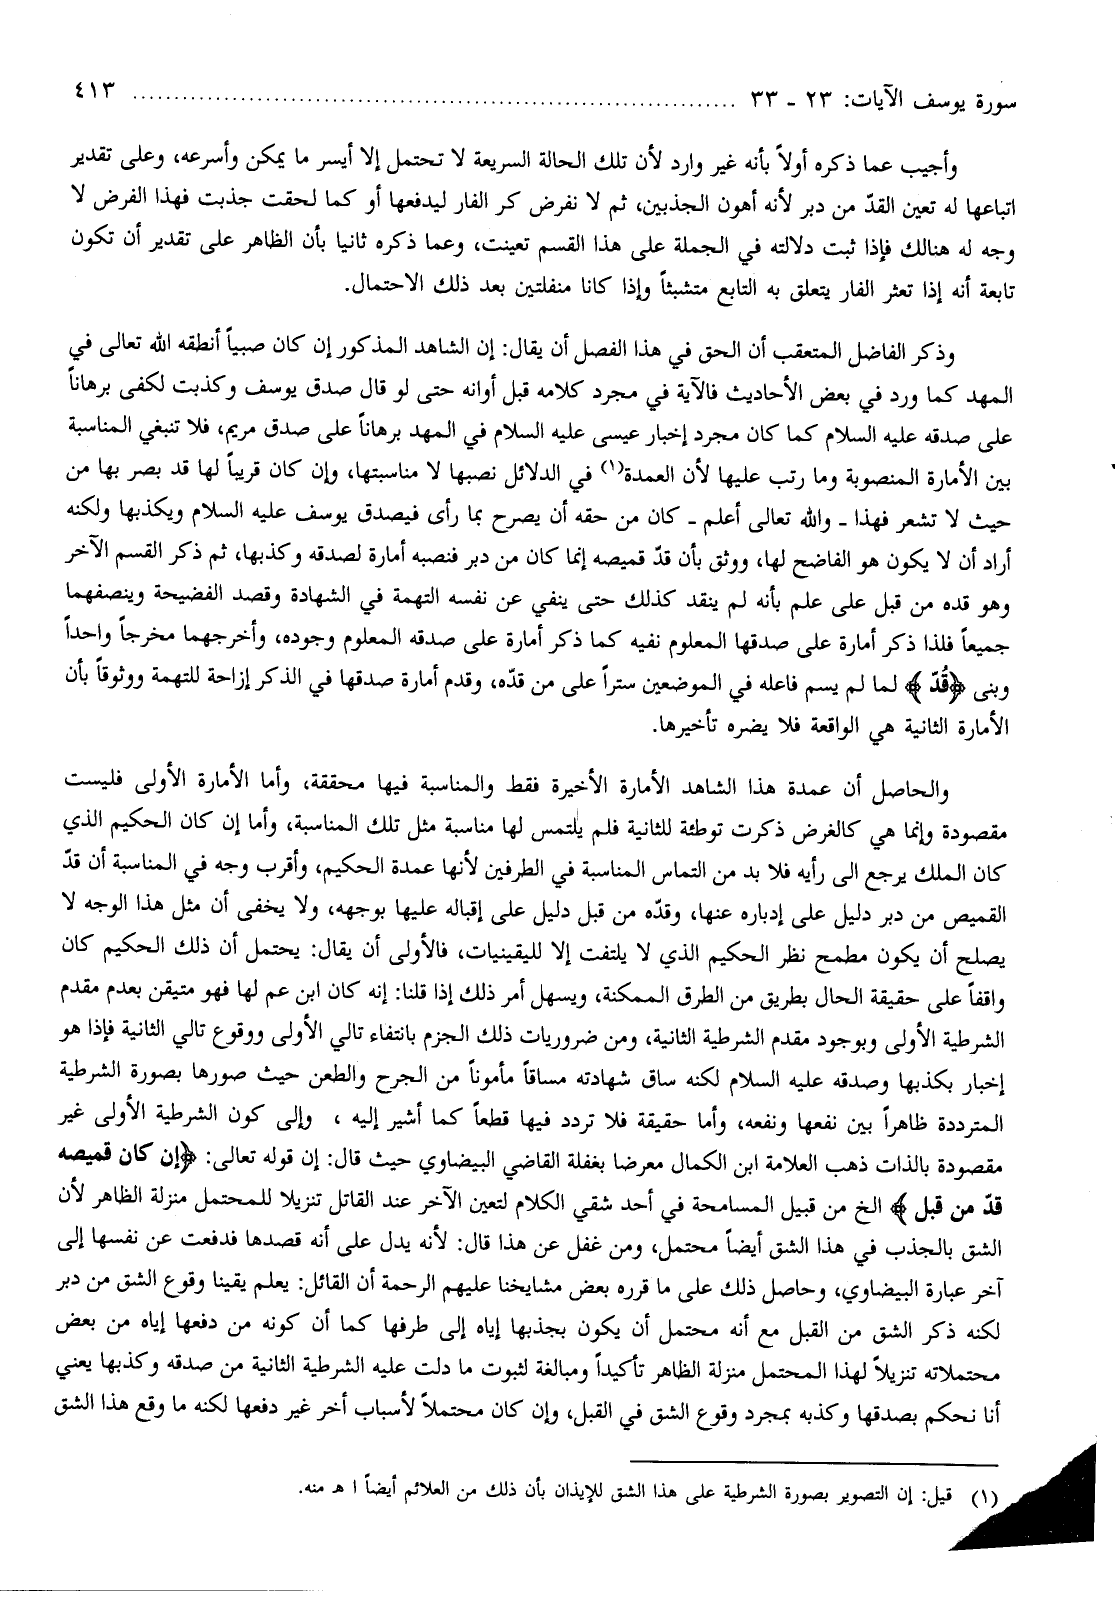 سورة يوسف الآيات: ٢٣ ـ ٣٣ ........................................ ٤١٣
وأجيب عما ذكره أولاً بأنه غير وارد لأن تلك الحالة السريعة لا تحتمل إلا أيسر ما يمكن وأسرعه، وعلى تقدير
اتباعها له تعين القدّ من دبر لأنه أهون الجذبين، ثم لا نفرض كر الفار ليدفعها أو كما لحقت جذبت فهذا الفرض لا
وجه له هنالك فإذا ثبت دلالته في الجملة على هذا القسم تعينت، وعما ذكره ثانيا بأن الظاهر على تقدير أن تكون
تابعة أنه إذا تعثر الفار يتعلق به التابع متشبثاً وإذا كانا منفلتين بعد ذلك الاحتمال.
وذكر الفاضل المتعقب أن الحق في هذا الفصل أن يقال: إن الشاهد المذكور إن كان صبياً أنطقه الله تعالى في
المهد كما ورد في بعض الأحاديث فالآية في مجرد كلامه قبل أوانه حتى لو قال صدق يوسف وكذبت لكفى برهاناً
على صدقه عليه السلام كما كان مجرد إخبار عيسى عليه السلام في المهد برهاناً على صدق مريم، فلا تنبغي المناسبة
بين الأمارة المنصوبة وما رتب عليها لأن العمدة(١) في الدلائل نصبها لا مناسبتها، وإن كان قريباً لها قد بصر بها من
حيث لا تشعر فهذا ـ والله تعالى أعلم ـ كان من حقه أن يصرح بما رأى فيصدق يوسف عليه السلام ويكذبها ولكنه
أراد أن لا يكون هو الفاضح لها، ووثق بأن قدّ قميصه إنما كان من دبر فنصبه أمارة لصدقه وكذبها، ثم ذكر القسم الآخر
وهو قده من قبل على علم بأنه لم ينقد كذلك حتى ينفي عن نفسه التهمة في الشهادة وقصد الفضيحة وينصفهما
جميعاً فلذا ذكر أمارة على صدقها المعلوم نفيه كما ذكر أمارة على صدقه المعلوم وجوده، وأخرجهما مخرجاً واحداً
وبنى ﴿قُدّ﴾ لما لم يسم فاعله في الموضعين ستراً على من قدّه، وقدم أمارة صدقها في الذكر إزاحة للتهمة ووثوقاً بأن
الأمارة الثانية هي الواقعة فلا يضره تأخيرها.
والحاصل أن عمدة هذا الشاهد الأمارة الأخيرة فقط والمناسبة فيها محققة، وأما الأمارة الأولى فليست
مقصودة وإنما هي كالغرض ذكرت توطئة للثانية فلم يلتمس لها مناسبة مثل تلك المناسبة، وأما إن كان الحكيم الذي
كان الملك يرجع الى رأيه فلا بد من التماس المناسبة في الطرفين لأنها عمدة الحكيم، وأقرب وجه في المناسبة أن قدّ
القميص من دبر دليل على إدباره عنها، وقدّه من قبل دليل على إقباله عليها بوجهه، ولا يخفى أن مثل هذا الوجه لا
يصلح أن يكون مطمح نظر الحكيم الذي لا يلتفت إلا لليقينيات، فالأولى أن يقال: يحتمل أن ذلك الحكيم كان
واقفاً على حقيقة الحال بطريق من الطرق الممكنة، ويسهل أمر ذلك إذا قلنا: إنه كان ابن عم لها فهو متيقن بعدم مقدم
الشرطية الأولى وبوجود مقدم الشرطية الثانية، ومن ضروريات ذلك الجزم بانتفاء تالي الأولى ووقوع تالي الثانية فإذا هو
إخبار بكذبها وصدقه عليه السلام لكنه ساق شهادته مساقاً مأموناً من الجرح والطعن حيث صورها بصورة الشرطية
المترددة ظاهراً بين نفعها ونفعه، وأما حقيقة فلا تردد فيها قطعاً كما أشير إليه ، وإلى كون الشرطية الأولى غير
مقصودة بالذات ذهب العلامة ابن الكمال معرضا بغفلة القاضي البيضاوي حيث قال: إن قوله تعالى: ﴿إن كان قميصه
قدّ من قبل﴾ الخ من قبيل المسامحة في أحد شقي الكلام لتعين الآخر عند القائل تنزيلا للمحتمل منزلة الظاهر لأن
الشق بالجذب في هذا الشق أيضاً محتمل، ومن غفل عن هذا قال: لأنه يدل على أنه قصدها فدفعت عن نفسها إلى
آخر عبارة البيضاوي، وحاصل ذلك على ما قرره بعض مشايخنا عليهم الرحمة أن القائل: يعلم يقينا وقوع الشق من دبر
لكنه ذكر الشق من القبل مع أنه محتمل أن يكون بجذبها إياه إلى طرفها كما أن كونه من دفعها إياه من بعض
محتملاته تنزيلاً لهذا المحتمل منزلة الظاهر تأكيداً ومبالغة لثبوت ما دلت عليه الشرطية الثانية من صدقه وكذبها يعني
أنا نحكم بصدقها وكذبه بمجرد وقوع الشق في القبل، وإن كان محتملاً لأسباب أخر غير دفعها لكنه ما وقع هذا الشق
(١) قيل: إن التصوير بصورة الشرطية على هذا الشق للإيذان بأن ذلك من العلائم أيضاً ا هـ منه.